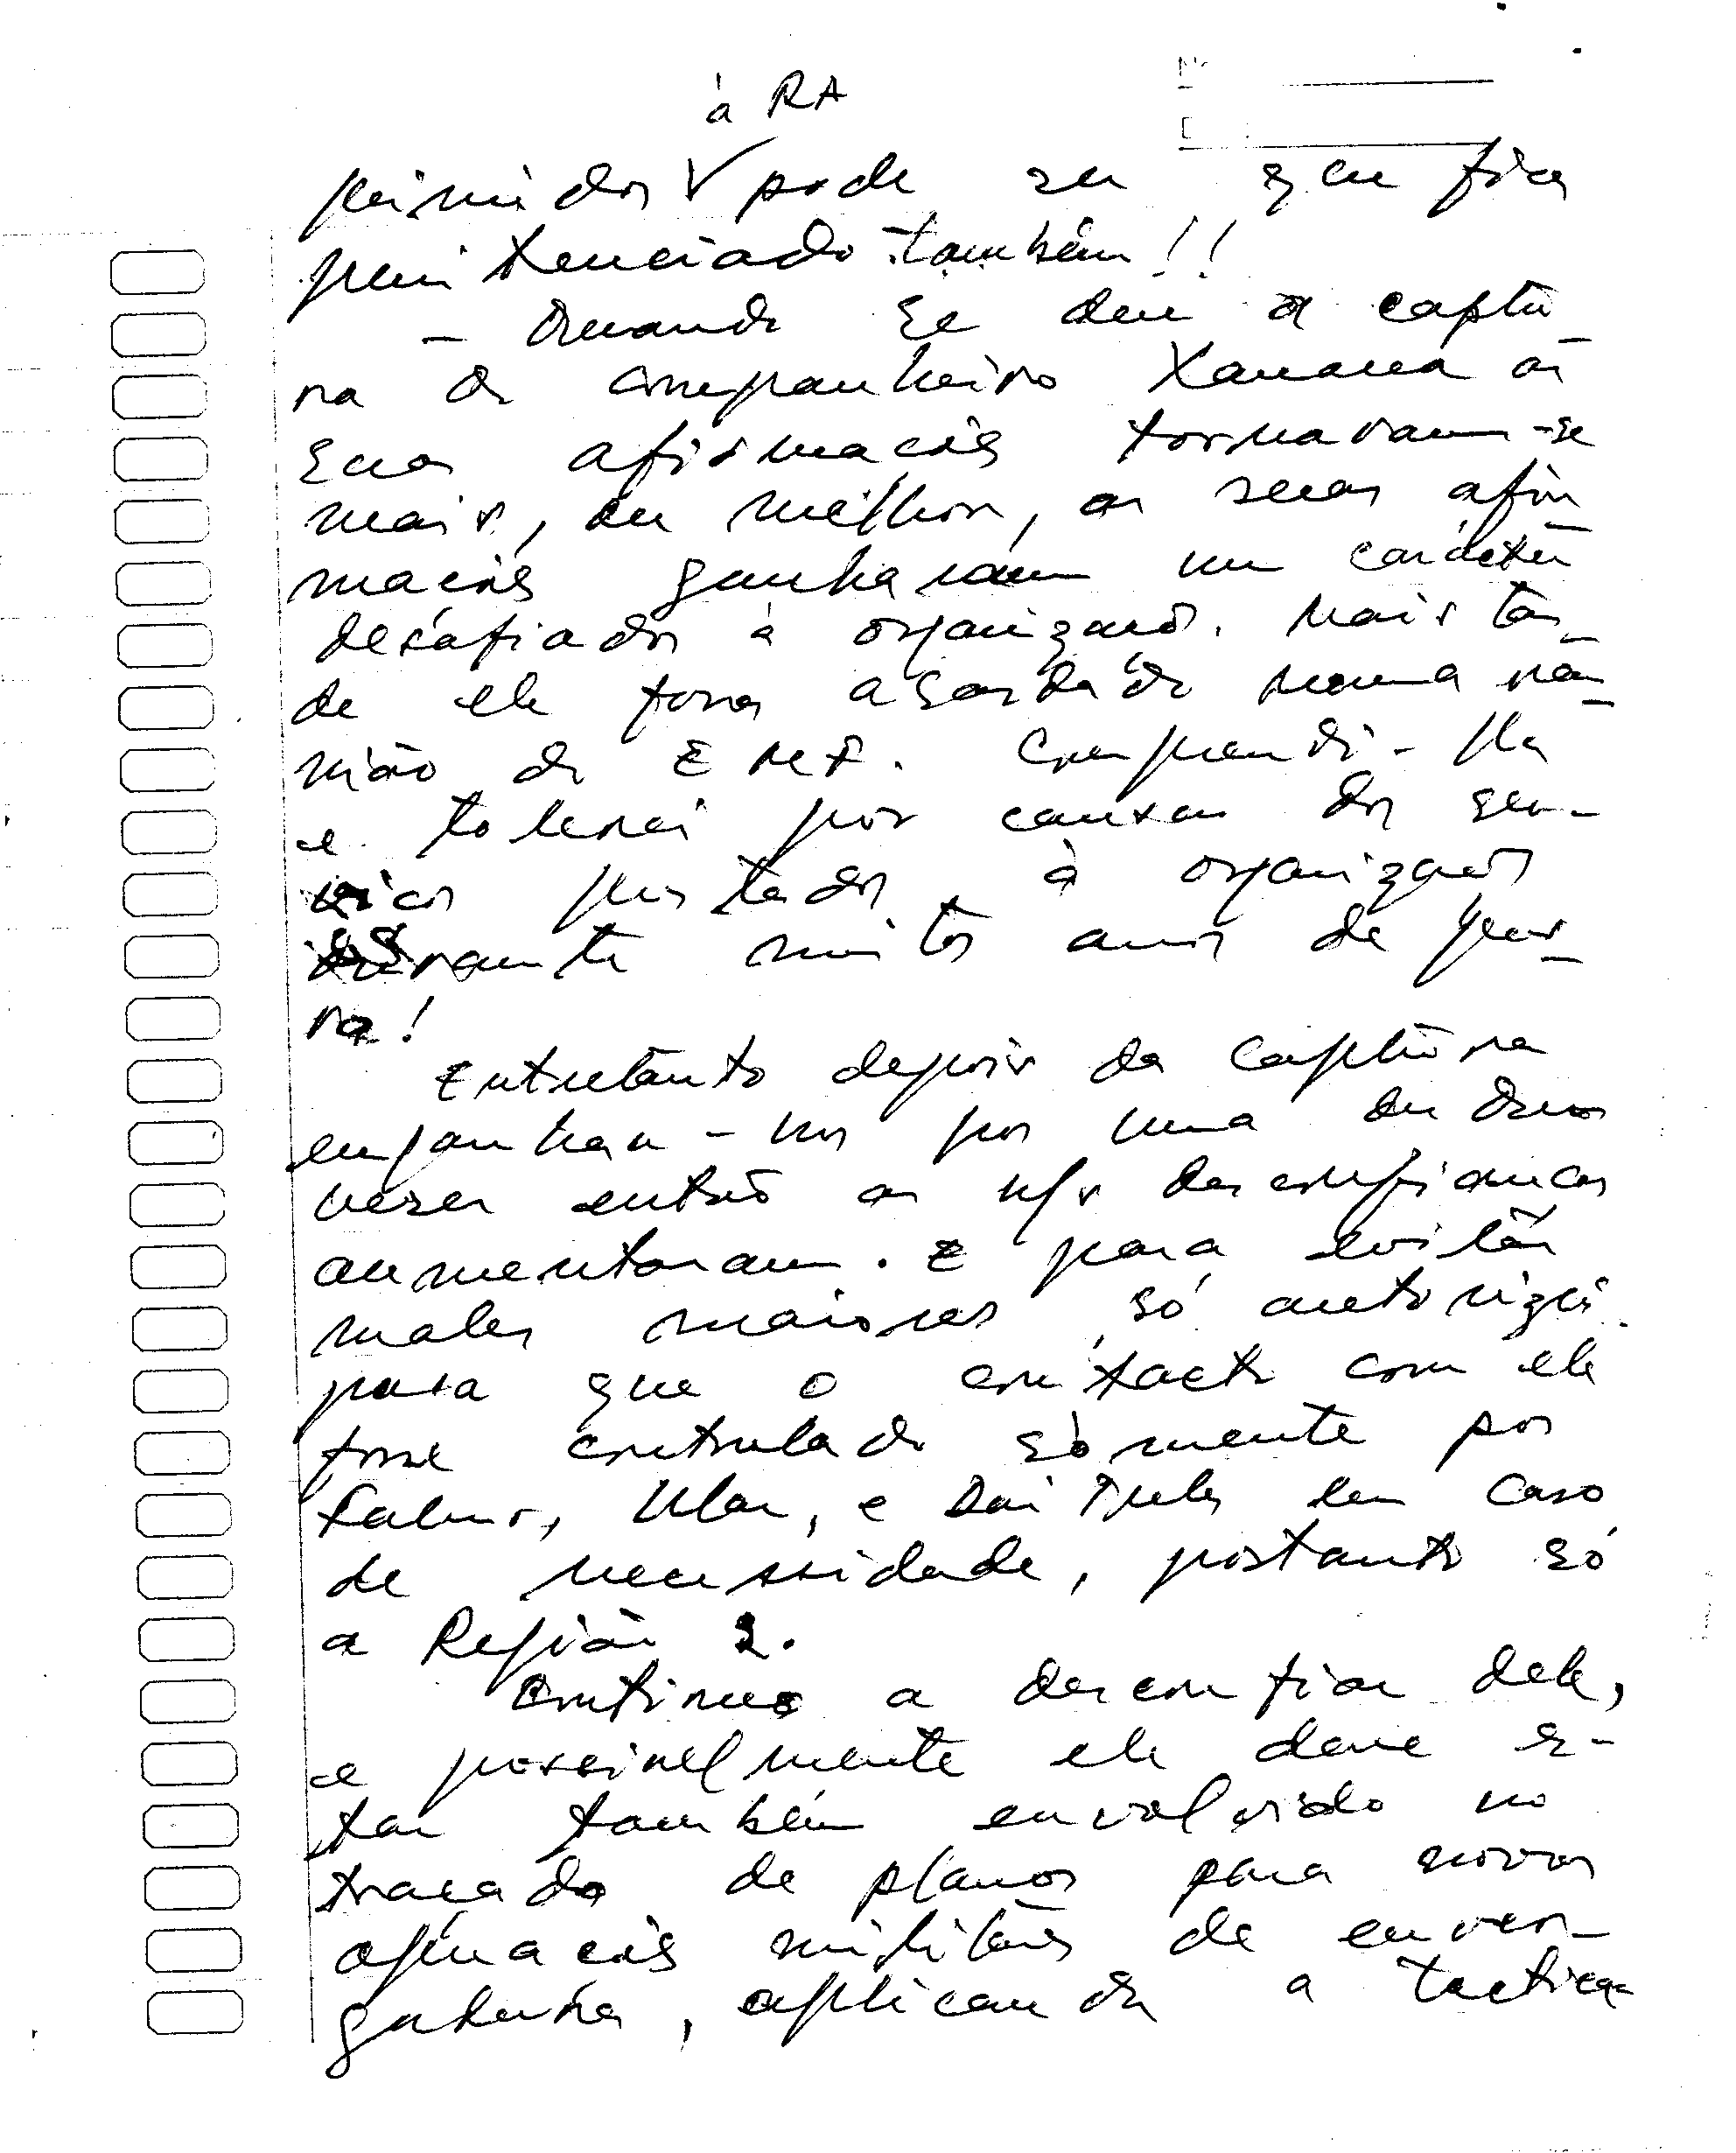 à RA
primidos pode ser que fica
penitenciado também!!
- Quando se deu a captu-
ra do companheiro Xanana as
suas afirmacões tornavam-se
mais, ou melhor, as suas afir-
macões ganharam um carácter
desafiador à organização. Mais tar-
de ele fora abordado numa reu-
nião do EMF. Compreendi-
e tolerei por causa dos ser-
vicos prestados à organização
durante muitos anos de guer-
ra!
Entretanto depois da captura
enganhou-nos por uma ou duas
vezes então as desconfiancas
aumentaram. E para evitar
males maiores, só autorizei
para que o contacto com ele
fosse controlado sómente por
Falur, Ular, e Dai Tula em caso
de necessidade, portanto só
a Região 2.
Continuo a desconfiar dele,
e possivelmente ele deve es-
tar também envolvido no
traçado de planos para novas
operacões militares de enver-
gadura, aplicando a tactica